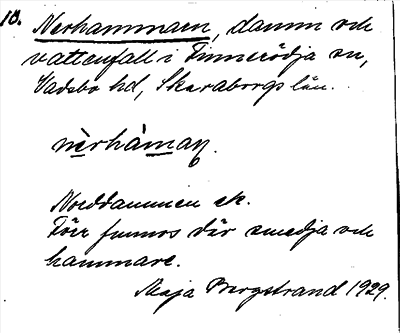 10. Nerhammaren, damm och
vattenfall i Finnerödja sn,
Vadsbo hd, Skaraborgs län.
nèrhàmaṇ.
Norddammen ek.
Förr funnos där smedja och
hammare.
Maja Bergstrand 1929.